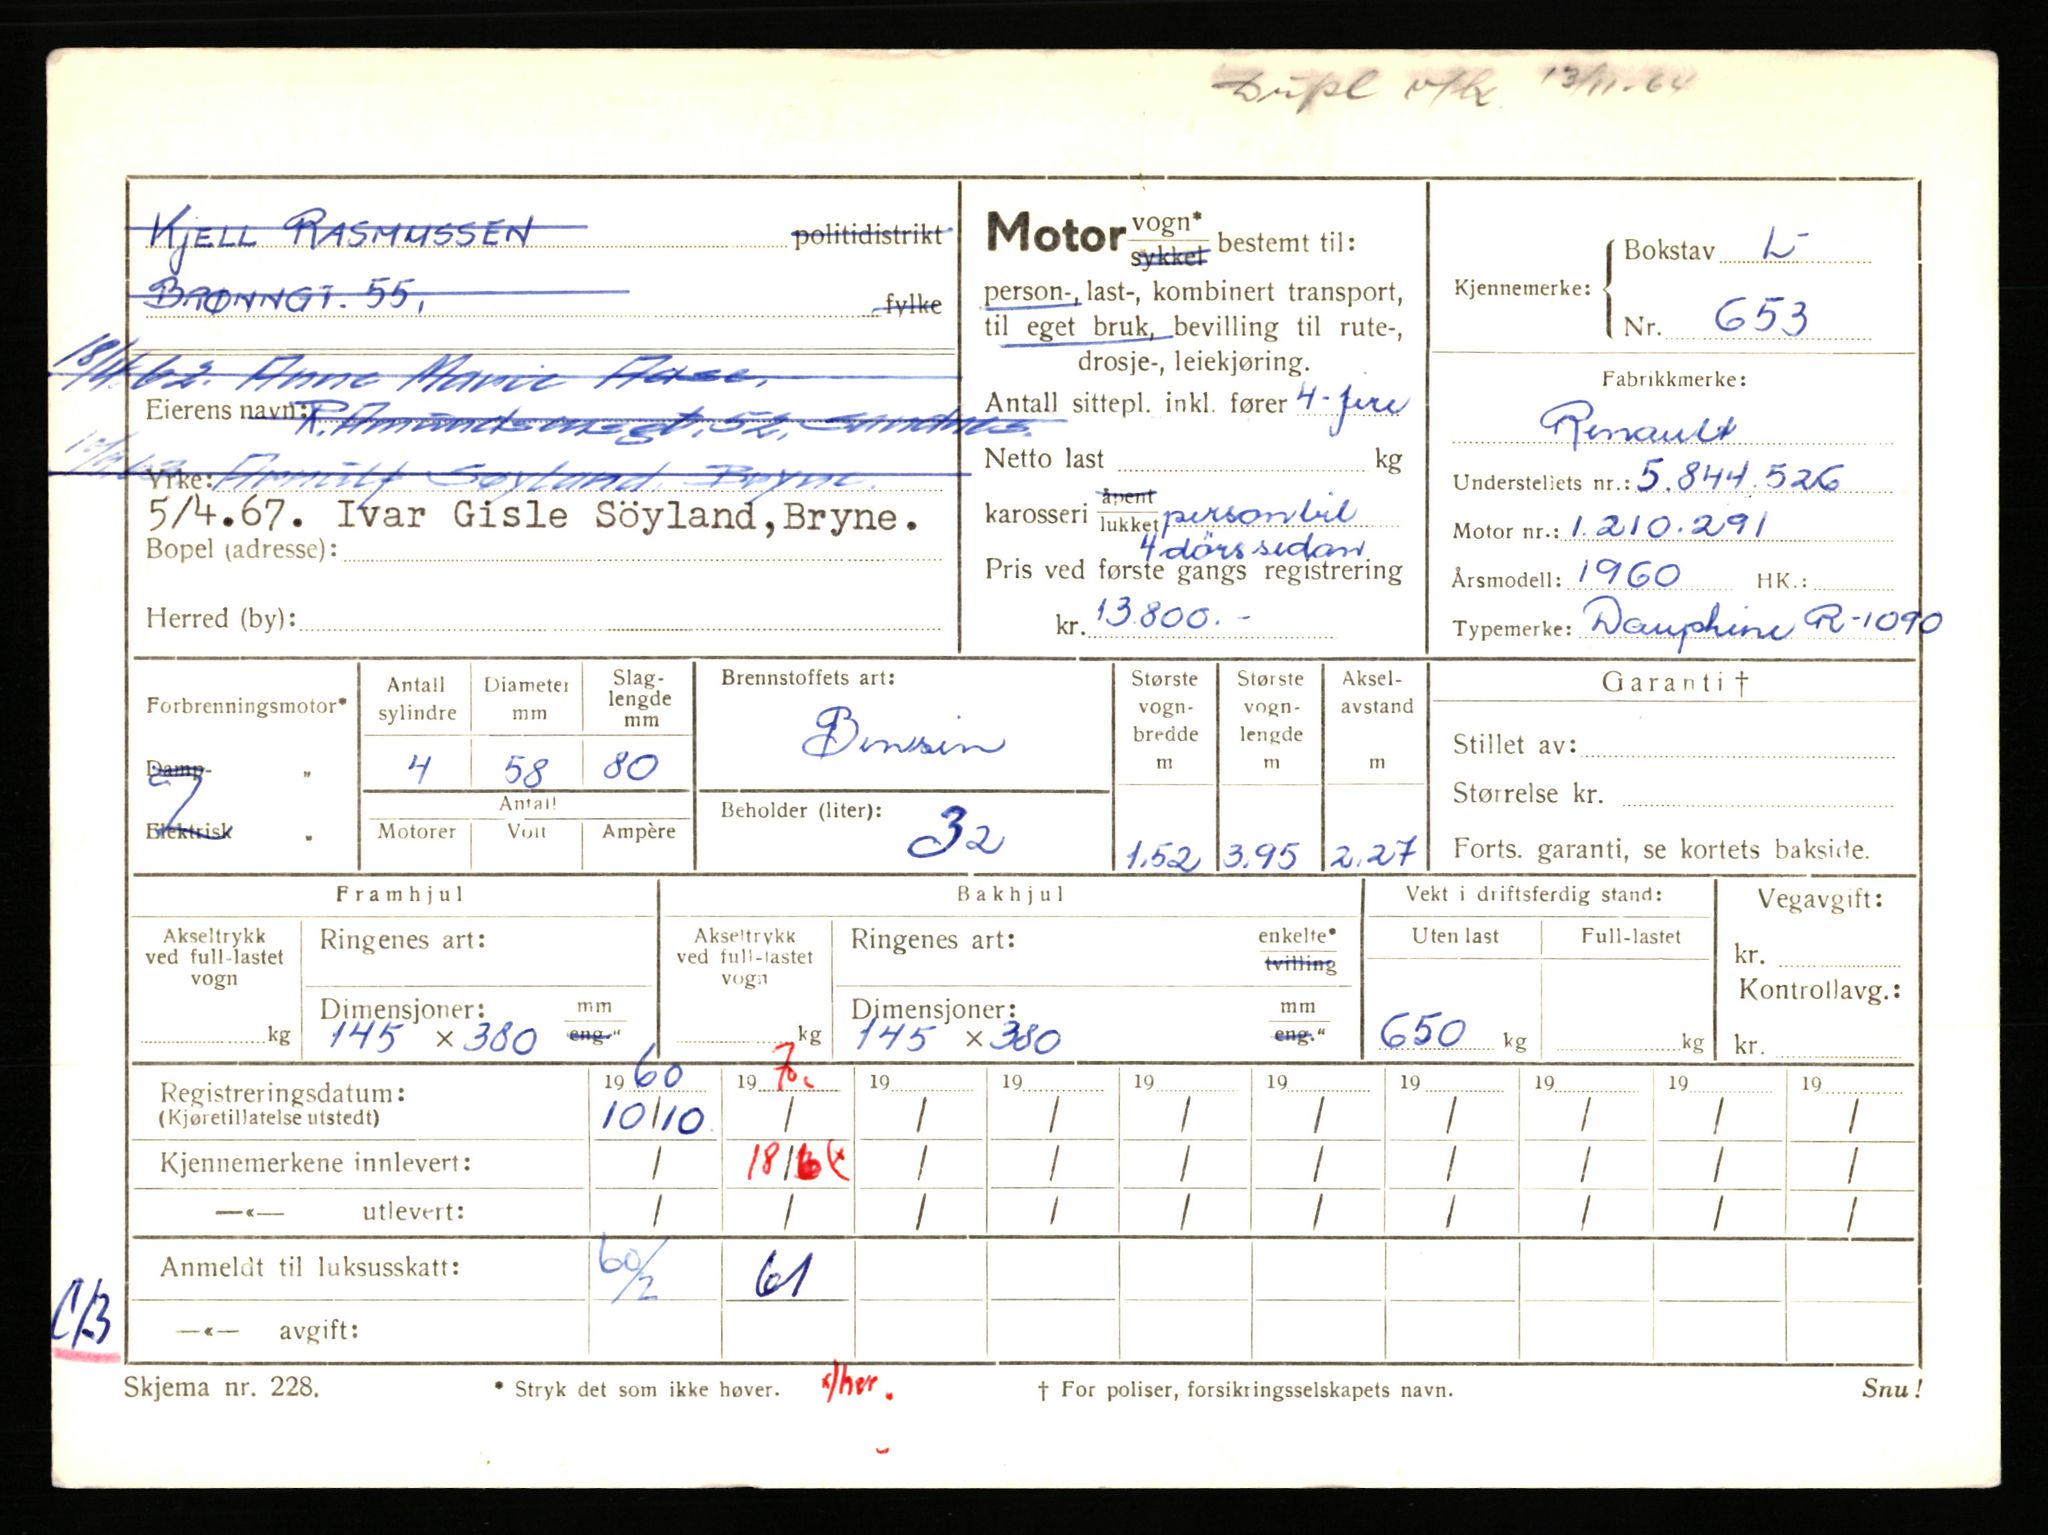 Dupl v/k 13/11-64
KJELL RASMUSSEN politidistrikt
BRØNNGT. 55, fylke
18/4.62. Anne Marie Aase.
Eierens navn: R. Amundsensgt. 52, Sandnes.
Yrke: Arnulf Søyland. Bryne.
5/4.67. Ivar Gisle Söyland, Bryne.
Bopel (adresse):
Herred (by):
Motor vogn* sykkel bestemt til:
person-, last-, kombinert transport,
til eget bruk, bevilling til rute-,
drosje-, leiekjøring.
Antall sittepl. inkl. fører 4-fire
Netto last kg
karosseri åpent lukket personbil
4 dørs sedan
Pris ved første gangs registrering
kr. 13.800.-
Kjennemerke: Bokstav L-
Nr. 653
Fabrikkmerke:
Renault
Understellets nr.: 5.844.526
Motor nr.: 1.210.291
Årsmodell: 1960 HK.:
Typemerke: Dauphine R-1090
Forbrenningsmotor*
Damp- "
Elektrisk "
Antall sylindre Diameter mm Slaglengde mm
4 58 80
Antall
Motorer Volt Ampère
Brennstoffets art:
Bensin
Beholder (liter):
32
Største vognbredde m Største vognlengde m Akselavstand m
1.52 3.95 2.27
Garanti †
Stillet av:
Størrelse kr.
Forts. garanti, se kortets bakside.
Framhjul Bakhjul Vekt i driftsferdig stand: Vegavgift:
Akseltrykk ved full-lastet vogn Ringenes art: Akseltrykk ved full-lastet vogn Ringenes art: enkelte* tvilling Uten last Full-lastet kr.
Kontrollavg.:
kg Dimensjoner: 145 × 380 mm eng." kg Dimensjoner: 145 × 380 mm eng." 650 kg kg kr.
Registreringsdatum: 19 60 19 70. 19 19 19 19 19 19 19 19
(Kjøretillatelse utstedt) 10/10 / / / / / / / / /
Kjennemerkene innlevert: / 18/6 x / / / / / / / /
—«— utlevert: / / / / / / / / / /
Anmeldt til luksusskatt: 60/2 61
—«— avgift:
C/B
Skjema nr. 228. * Stryk det som ikke høver. x/her. † For poliser, forsikringsselskapets navn. Snu!